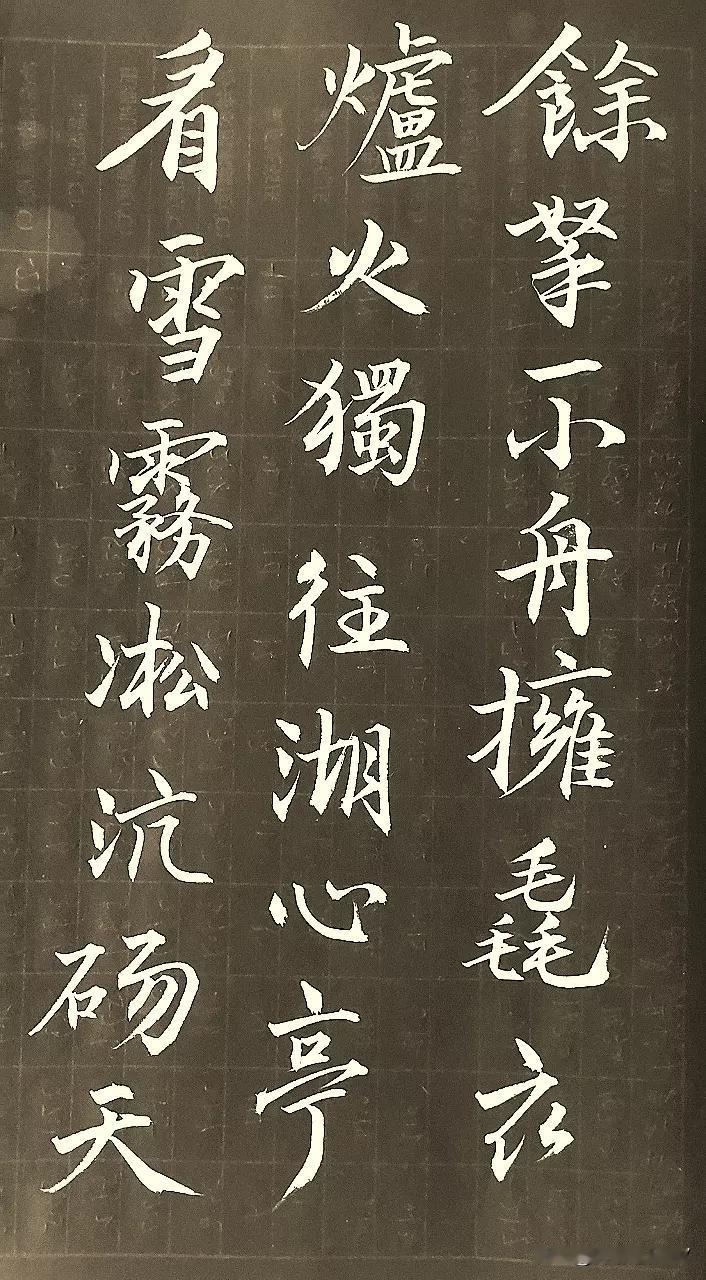 餘拏一小舟擁毳衣
爐火獨往湖心亭
看雪霧凇沆碭天